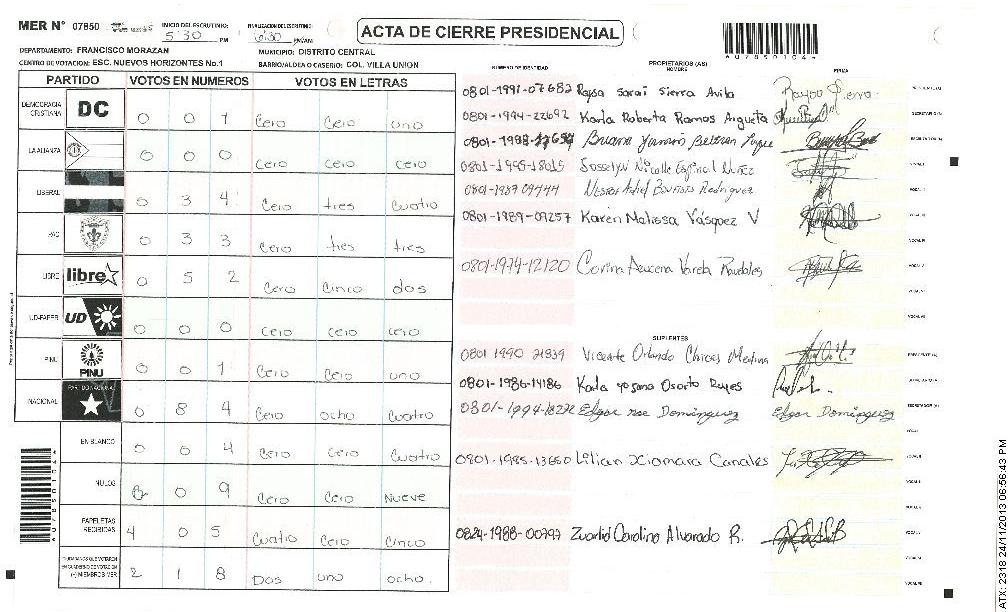 MER N° 07850
INICIO DEL ESCRUTINIO:
5:30 PM
FINALIZACION DEL ESCRUTINIO:
6:30 PM/AM
ACTA DE CIERRE PRESIDENCIAL
AU7850104
DEPARTAMENTO: FRANCISCO MORAZAN
MUNICIPIO: DISTRITO CENTRAL
CENTRO DE VOTACION: ESC. NUEVOS HORIZONTES No.1
BARRIO/ALDEA O CASERIO: COL. VILLA UNION
PARTIDO VOTOS EN NUMEROS VOTOS EN LETRAS
DEMOCRACIA CRISTIANA DC 0 0 1 Cero Cero uno
LA ALIANZA 0 0 0 Cero Cero cero
LIBERAL 0 3 4 Cero tres cuatro
PAC 0 3 3 Cero tres tres
LIBRE libre 0 5 2 Cero Cinco dos
UD-FAPER UD 0 0 0 Cero Cero Cero
PINU PINU 0 0 1 Cero Cero uno
NACIONAL PARTIDO NACIONAL 0 8 4 Cero ocho cuatro
EN BLANCO 0 0 4 Cero Cero Cuatro
NULOS 0 0 9 Cero Cero Nueve
PAPELETAS RECIBIDAS 4 0 5 Cuatro Cero Cinco
CIUDADANOS QUE VOTARON EN CUADERNO DE VOTACION (+) MIEMBROS MER 2 1 8 Dos uno ocho.
NUMERO DE IDENTIDAD
PROPIETARIOS (AS)
NOMBRE
FIRMA
0801-1991-07682 Raysa Sarai Sierra Avila
0801-1994-22692 Karla Roberta Ramos Argueta
0801-1995-18015 Josselyn Nicolle Espinal Nuñez
Nestor Adiel Bautista Rodriguez
0801-1989-09257 Karen Melissa Vásquez V
0801-1974-12120 Corina Azucena Varela Raudales
SUPLENTES
0801 1990 21839 Vicente Orlando Chicas Medina
0801-1986-14186 Karla Yosana Osorto Reyes
0801-1994-18272 Edgar noe Dominguez Edgar Dominguez
0801-1985-13650 Lilian Xiomara Canales
0824-1988-00797 Carolina Alvarado R.
AU7850104
ATX: 2318 24/11/2013 06:56:43 PM